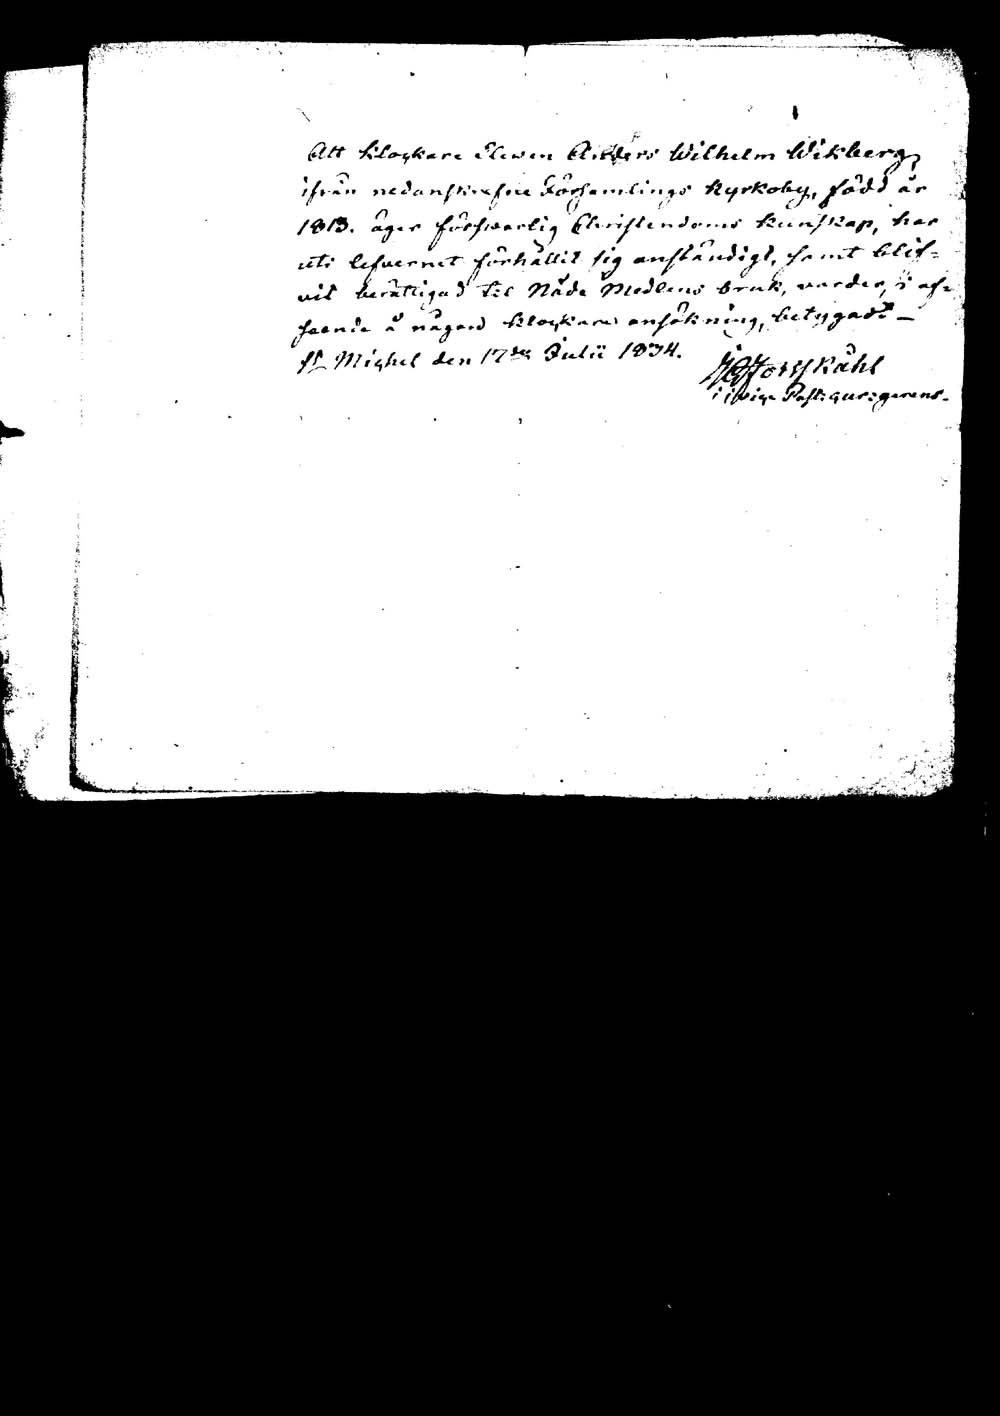 Att klockare Elewen Anders Wilhelm Wikberg,
ifrån nedanskrefne Församlings Kyrkoby, född år
1813. äger förswarlig Christendoms kunskap, har
uti lefvernet förhållit sig anständigt, samt blif=
vit berättigad til Nåde Medlens bruk, varder, i af=
seende å någon klockare ansökning, betygadt –
St Michel den 17de Julii 1834.
Forsskåhl
Past: cur: gerens.